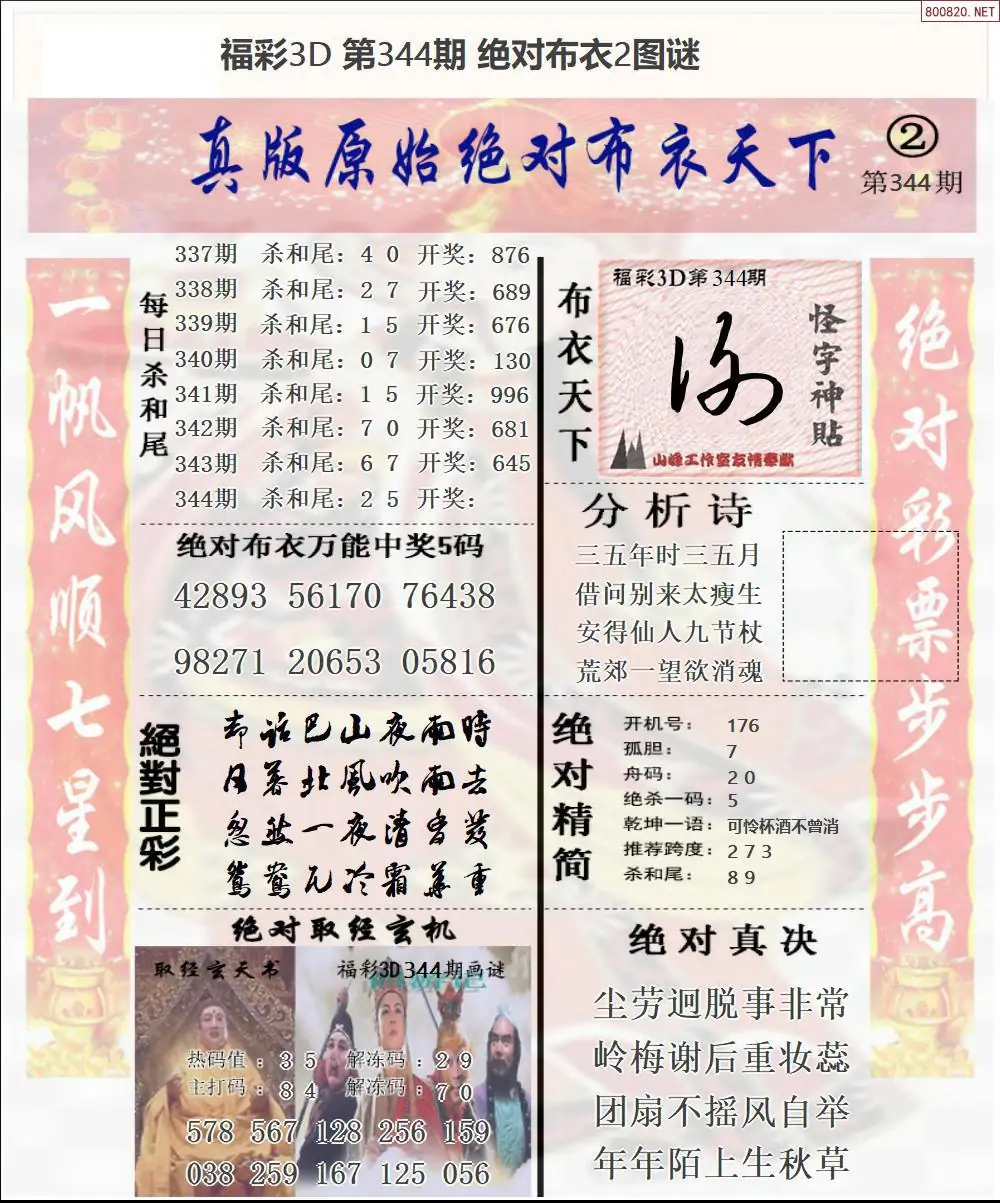 800820.NET
福彩3D 第344期 绝对布衣2图谜
真版原始绝对布衣天下
②
第344期
一帆风顺七星到
每日杀和尾
337期 杀和尾：4 0 开奖：876
338期 杀和尾：2 7 开奖：689
339期 杀和尾：1 5 开奖：676
340期 杀和尾：0 7 开奖：130
341期 杀和尾：1 5 开奖：996
342期 杀和尾：7 0 开奖：681
343期 杀和尾：6 7 开奖：645
344期 杀和尾：2 5 开奖：
绝对布衣万能中奖5码
42893 56170 76438
98271 20653 05816
絕對正彩
却话巴山夜雨時
日暮北風吹雨去
忽然一夜清香发
鴛鴦瓦冷霜華重
绝对取经玄机
取经玄天书
福彩3D344期画谜
热码值：3 5 解冻码：2 9
主打码：8 4 解冻码：7 0
578 567 128 256 159
038 259 167 125 056
布衣天下
福彩3D第344期
怪字神貼
山峰工作室友情奉献
分析诗
三五年时三五月
借问别来太瘦生
安得仙人九节杖
荒郊一望欲消魂
绝对精简
开机号： 176
孤胆： 7
舟码： 2 0
绝杀一码：5
乾坤一语：可怜杯酒不曾消
推荐跨度：2 7 3
杀和尾： 8 9
绝对真决
尘劳迥脱事非常
岭梅谢后重妆蕊
团扇不摇风自举
年年陌上生秋草
绝对彩票步步高